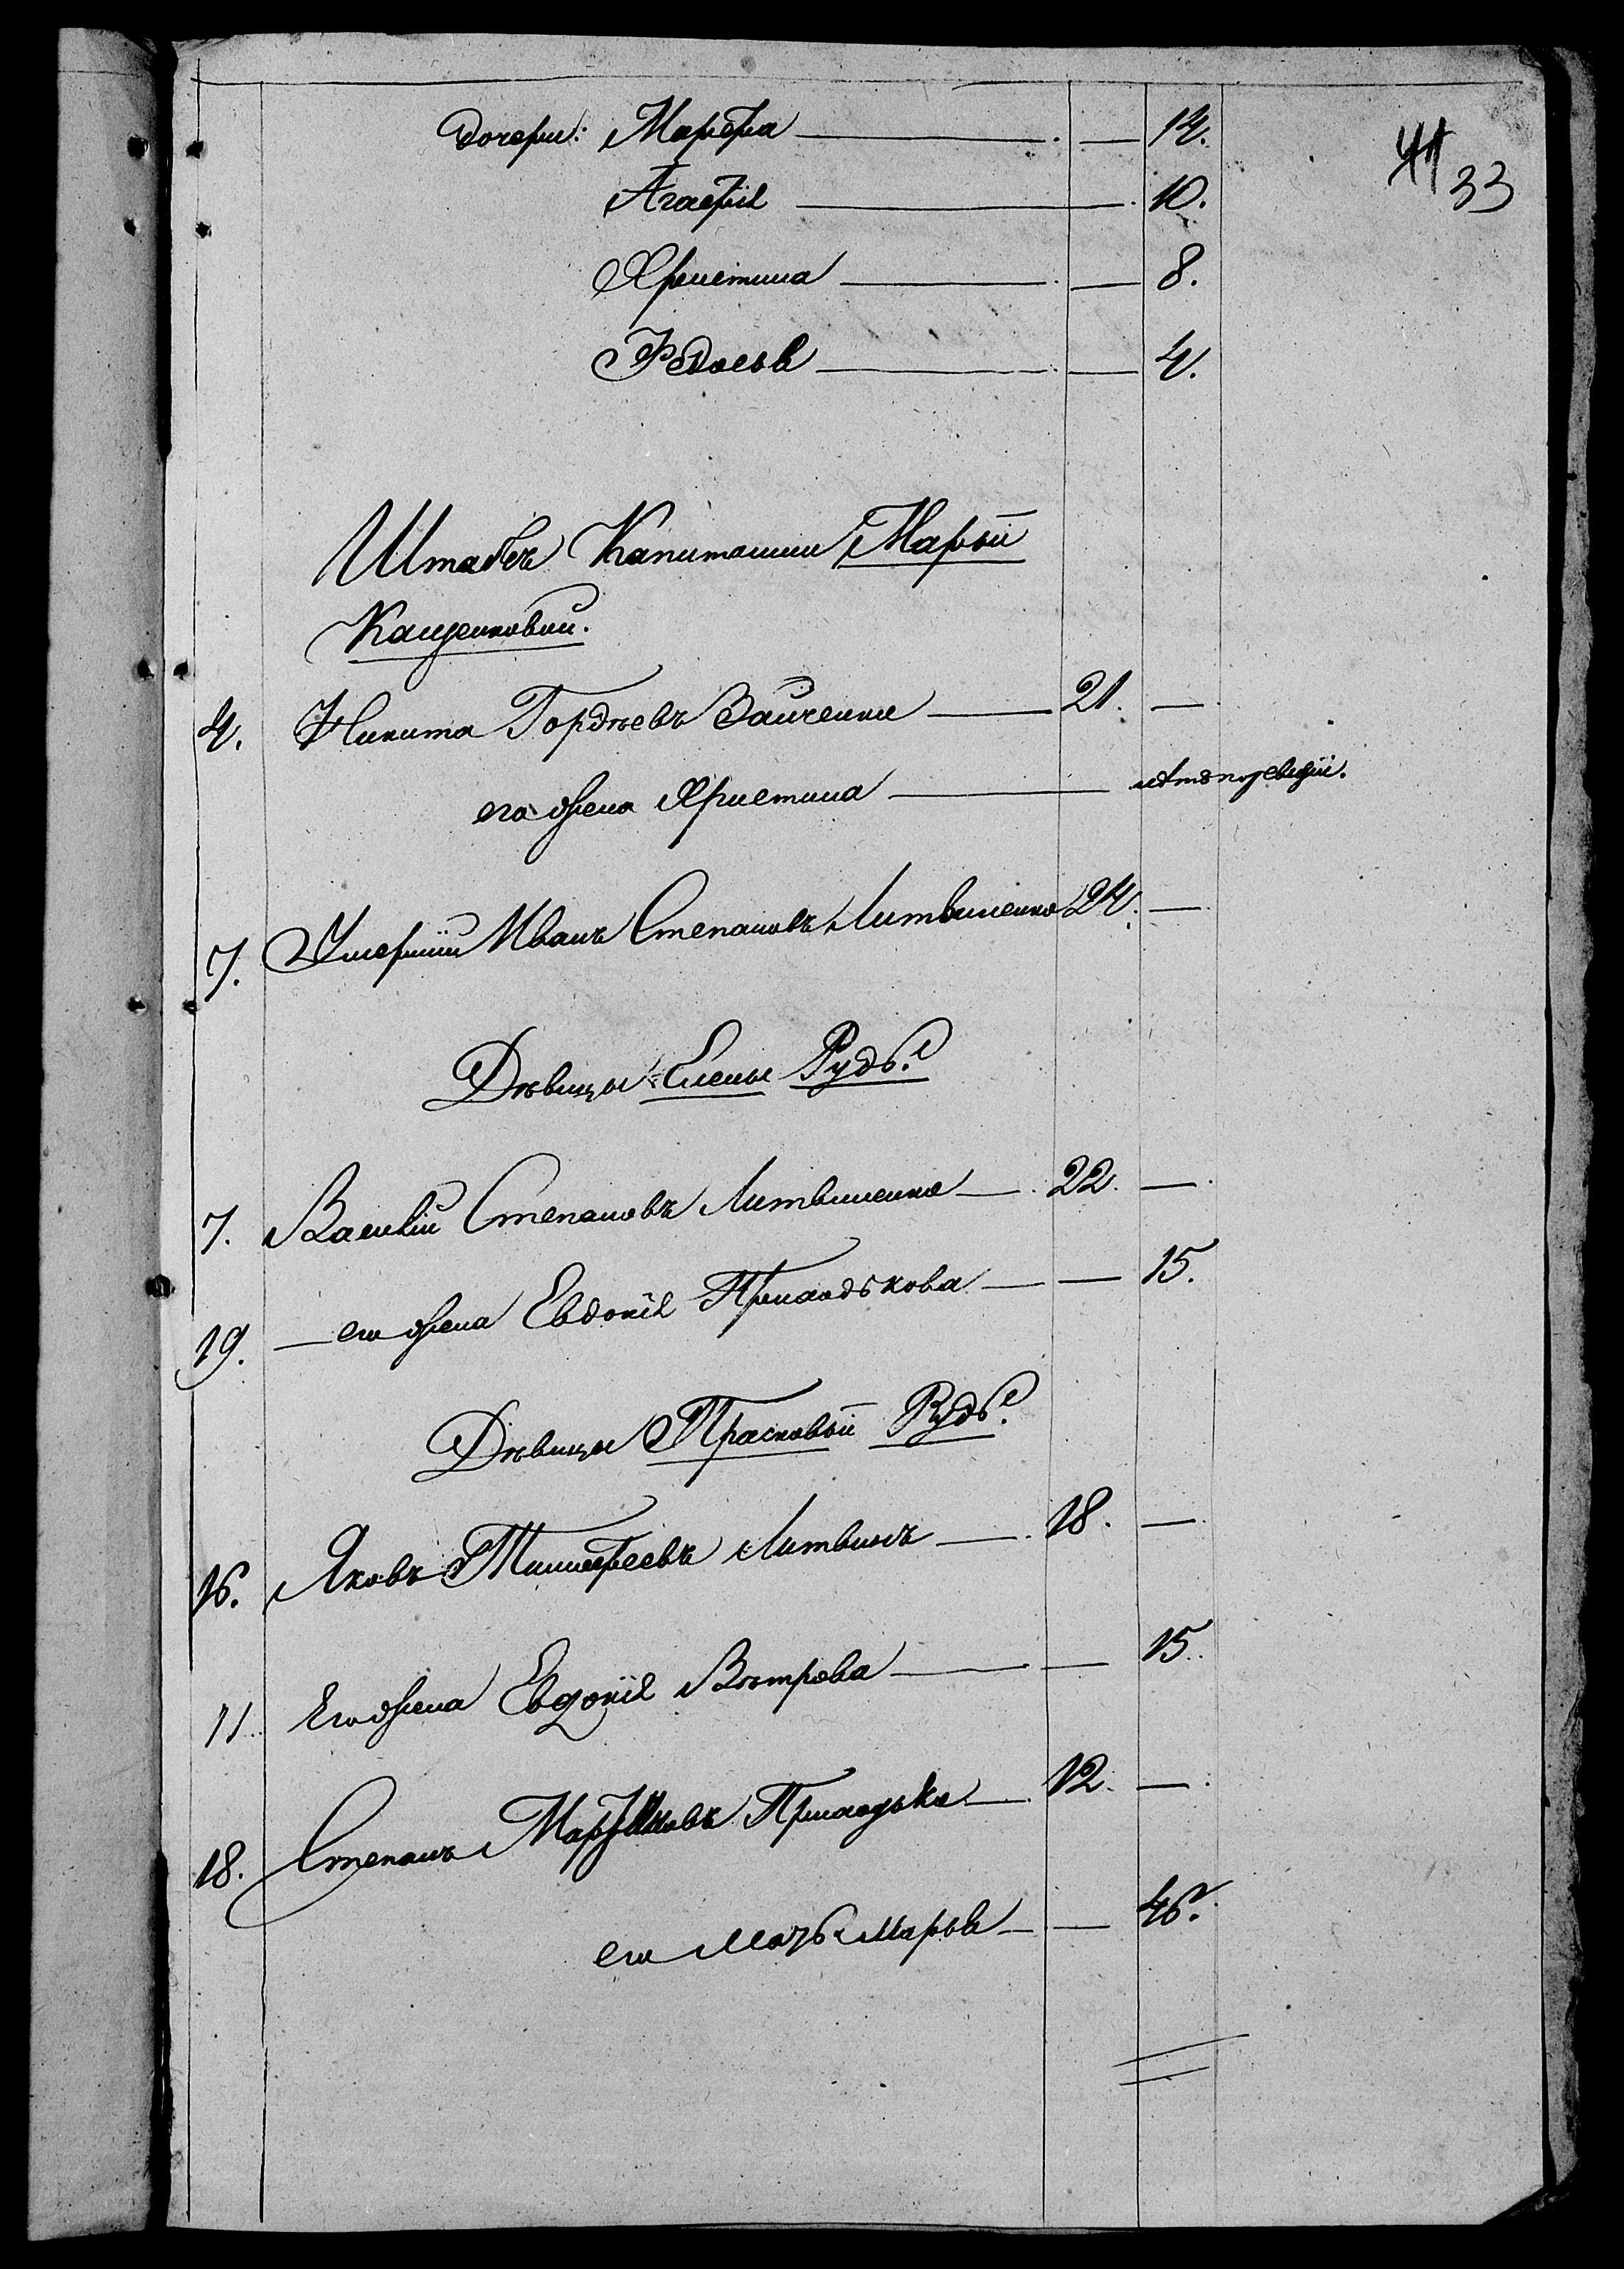 41
33
дочери: Марфа — 14.
Агафія — 10.
Христина — 8.
Федосья — 4.
Штабсъ Капитанши Марьи
Кащенковой.
4. Никита Гордѣевъ Зайченко — 21. —
его жена Христина — нѣтъ по ревизіи.
7. Умершій Иванъ Степановъ Литвиненко 24. —
Дѣвицы Елены Рудь.
7. Василій Степановъ Литвиненко — 22. —
19. — его жена Евдокія — — 15.
Дѣвицы Прасковьи Рудь.
16. Яковъ Тимофеевъ Литвинъ — 18. —
11. Его жена Евдокія Вѣтрова — — 15.
18. Степанъ — 12. —
его мать Марья — — 46.